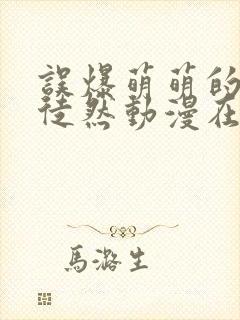 誤爆萌萌的
徒然動漫在
馬潞生